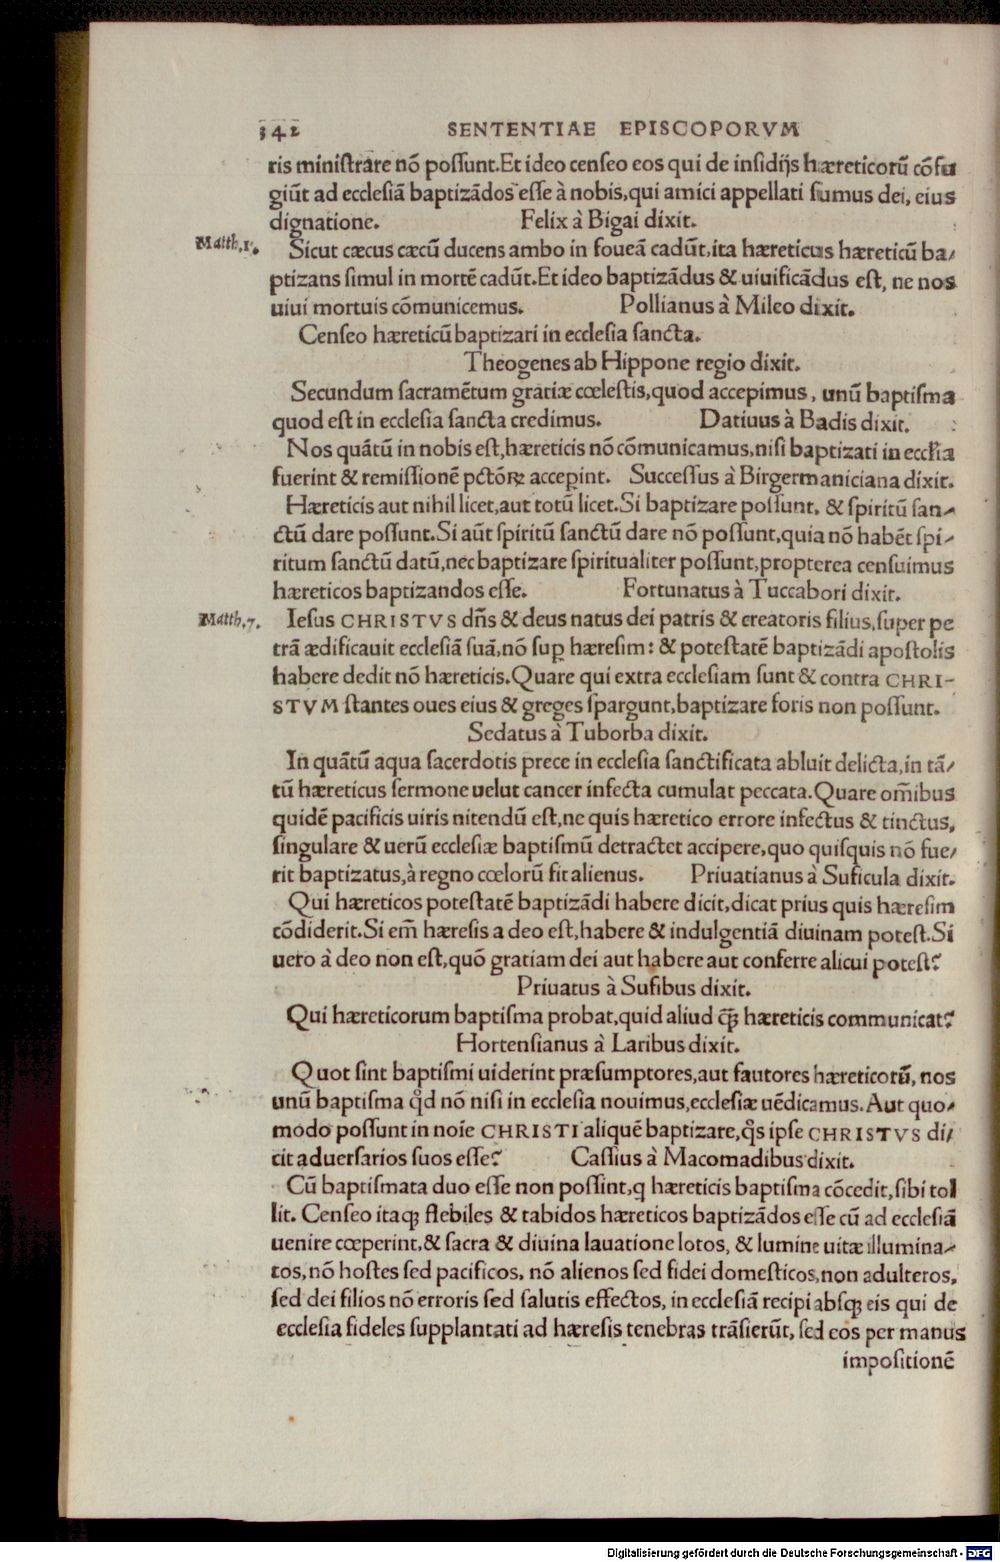 342 SENTENTIAE EPISCOPORVM
ris miniſtrare nõ poſſunt.Et ideo cenſeo eos qui de inſidijs hæreticorũ cõfu
giũt ad eccleſiã baptizãdos eſſe à nobis,qui amici appellati ſumus dei, eius
dignatione. Felix à Bigai dixit.
Matth.15. Sicut cæcus cæcũ ducens ambo in foueã cadũt,ita hæreticus hæreticũ ba/
ptizans ſimul in mortẽ cadũt.Et ideo baptizãdus & uiuificãdus eſt, ne nos
uiui mortuis cõmunicemus. Pollianus à Mileo dixit.
Cenſeo hæreticũ baptizari in eccleſia ſancta.
Theogenes ab Hippone regio dixit.
Secundum ſacramẽtum gratiæ cœleſtis,quod accepimus, unũ baptiſma
quod eſt in eccleſia ſancta credimus. Datiuus à Badis dixit.
Nos quãtũ in nobis eſt,hæreticis nõ cõmunicamus,niſi baptizati in eccľia
fuerint & remiſſionẽ pctõꝝ acceꝑint. Succeſſus à Birgermaniciana dixit.
Hæreticis aut nihil licet,aut totũ licet.Si baptizare poſſunt, & ſpiritũ ſan-
ctũ dare poſſunt.Si aũt ſpiritũ ſanctũ dare nõ poſſunt,quia nõ habẽt ſpi-
ritum ſanctũ datũ,nec baptizare ſpiritualiter poſſunt,propterea cenſuimus
hæreticos baptizandos eſſe. Fortunatus à Tuccabori dixit.
Matth.7. Ieſus CHRISTVS dñs & deus natus dei patris & creatoris filius,ſuper pe
trã ædificauit eccleſiã ſuã,nõ ſuꝑ hæreſim: & poteſtatẽ baptizãdi apoſtolis
habere dedit nõ hæreticis.Quare qui extra eccleſiam ſunt & contra CHRI-
STVM ſtantes oues eius & greges ſpargunt,baptizare foris non poſſunt.
Sedatus à Tuborba dixit.
In quãtũ aqua ſacerdotis prece in eccleſia ſanctificata abluit delicta,in tã/
tũ hæreticus ſermone uelut cancer infecta cumulat peccata.Quare om̃ibus
quidẽ pacificis uiris nitendũ eſt,ne quis hæretico errore infectus & tinctus,
ſingulare & uerũ eccleſiæ baptiſmũ detractet accipere,quo quiſquis nõ fue/
rit baptizatus,à regno cœlorũ fit alienus. Priuatianus à Suficula dixit.
Qui hæreticos poteſtatẽ baptizãdi habere dicit,dicat prius quis hæreſim
cõdiderit.Si em̃ hæreſis a deo eſt,habere & indulgentiã diuinam poteſt.Si
uero à deo non eſt,quõ gratiam dei aut habere aut conferre alicui poteſt?
Priuatus à Sufibus dixit.
Qui hæreticorum baptiſma probat,quid aliud q̃ꝫ hæreticis communicat?
Hortenſianus à Laribus dixit.
Quot ſint baptiſmi uiderint præſumptores,aut fautores hæreticorũ, nos
unũ baptiſma qđ nõ niſi in eccleſia nouimus,eccleſiæ uẽdicamus.Aut quo-
modo poſſunt in noĩe CHRISTI aliquẽ baptizare,q̃s ipſe CHRISTVS di/
cit aduerſarios ſuos eſſe? Caſſius à Macomadibus dixit.
Cũ baptiſmata duo eſſe non poſſint,q hæreticis baptiſma cõcedit,ſibi tol
lit. Cenſeo itaqꝫ flebiles & tabidos hæreticos baptizãdos eſſe cũ ad eccleſiã
uenire cœperint,& ſacra & diuina lauatione lotos, & lumine uitæ illumina-
tos,nõ hoſtes ſed pacificos, nõ alienos ſed fidei domeſticos,non adulteros,
ſed dei filios nõ erroris ſed ſalutis effectos, in eccleſiã recipi abſqꝫ eis qui de
eccleſia fideles ſupplantati ad hæreſis tenebras trãſierũt, ſed eos per manus
impoſitionẽ
Digitalisierung gefördert durch die Deutsche Forschungsgemeinschaft - DFG